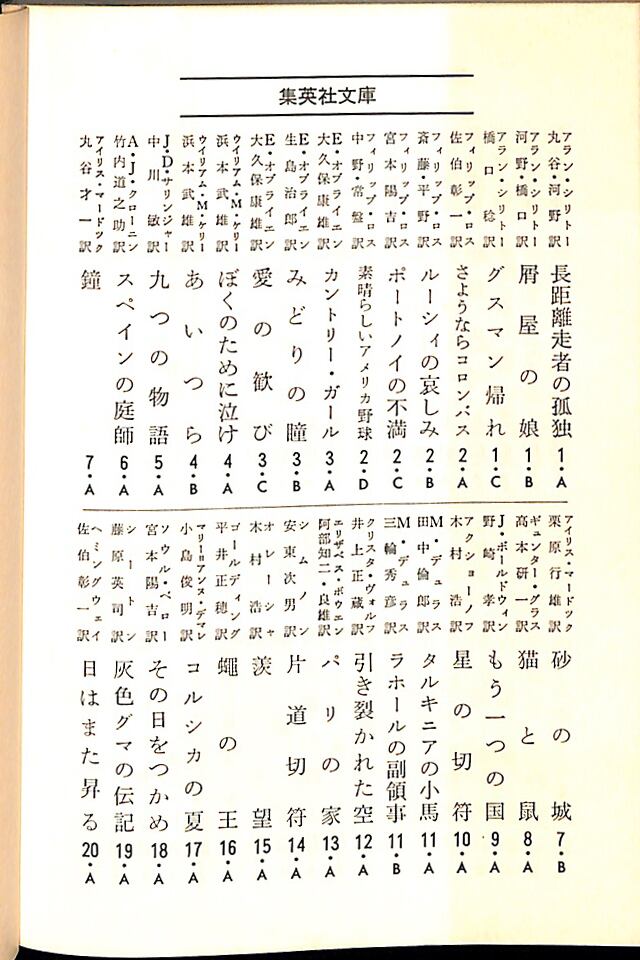 集英社文庫
アラン・シリトー
丸谷・河野訳
長距離走者の孤独
1・A
アラン・シリトー
河野・橋口訳
屑屋の娘
1・B
アラン・シリトー
橋口稔訳
グスマン帰れ
1・C
フィリップ・ロス
佐伯彰一訳
さようならコロンバス
2・A
フィリップ・ロス
斎藤・平野訳
ルーシィの哀しみ
2・B
フィリップ・ロス
宮本陽吉訳
ポートノイの不満
2・C
フィリップ・ロス
中野・常盤訳
素晴らしいアメリカ野球
2・D
E・オブライエン
大久保康雄訳
カントリー・ガール
3・A
E・オブライエン
生島治郎訳
みどりの瞳
3・B
E・オブライエン
大久保康雄訳
愛の歓び
3・C
ウイリアム・M・ケリー
浜本武雄訳
ぼくのために泣け
4・A
ウイリアム・M・ケリー
浜本武雄訳
あいつら
4・B
J・D・サリンジャー
中川敏訳
九つの物語
5・A
A・J・クローニン
竹内道之助訳
スペインの庭師
6・A
アイリス・マードック
丸谷才一訳
鐘
7・A
アイリス・マードック
栗原行雄訳
砂の城
7・B
ギュンター・グラス
高本研一訳
猫と鼠
8・A
J・ボールドウィン
野崎孝訳
もう一つの国
9・A
アクショーノフ
木村浩訳
星の切符
10・A
M・デュラス
田中倫郎訳
タルキニアの小馬
11・A
M・デュラス
三輪秀彦訳
ラホールの副領事
11・B
クリスタ・ヴォルフ
井上正蔵訳
引き裂かれた空
12・A
エリザベス・ボウエン
阿部知二・良雄訳
パリの家
13・A
シムノン
安東次男訳
片道切符
14・A
オレーシャ
木村浩訳
羨望
15・A
ゴールディング
平井正穂訳
蠅の王
16・A
マリー=アンヌ・デマレ
小島俊明訳
コルシカの夏
17・A
ソウル・ベロー
宮本陽吉訳
その日をつかめ
18・A
シートン
藤原英司訳
灰色グマの伝記
19・A
ヘミングウェイ
佐伯彰一訳
日はまた昇る
20・A